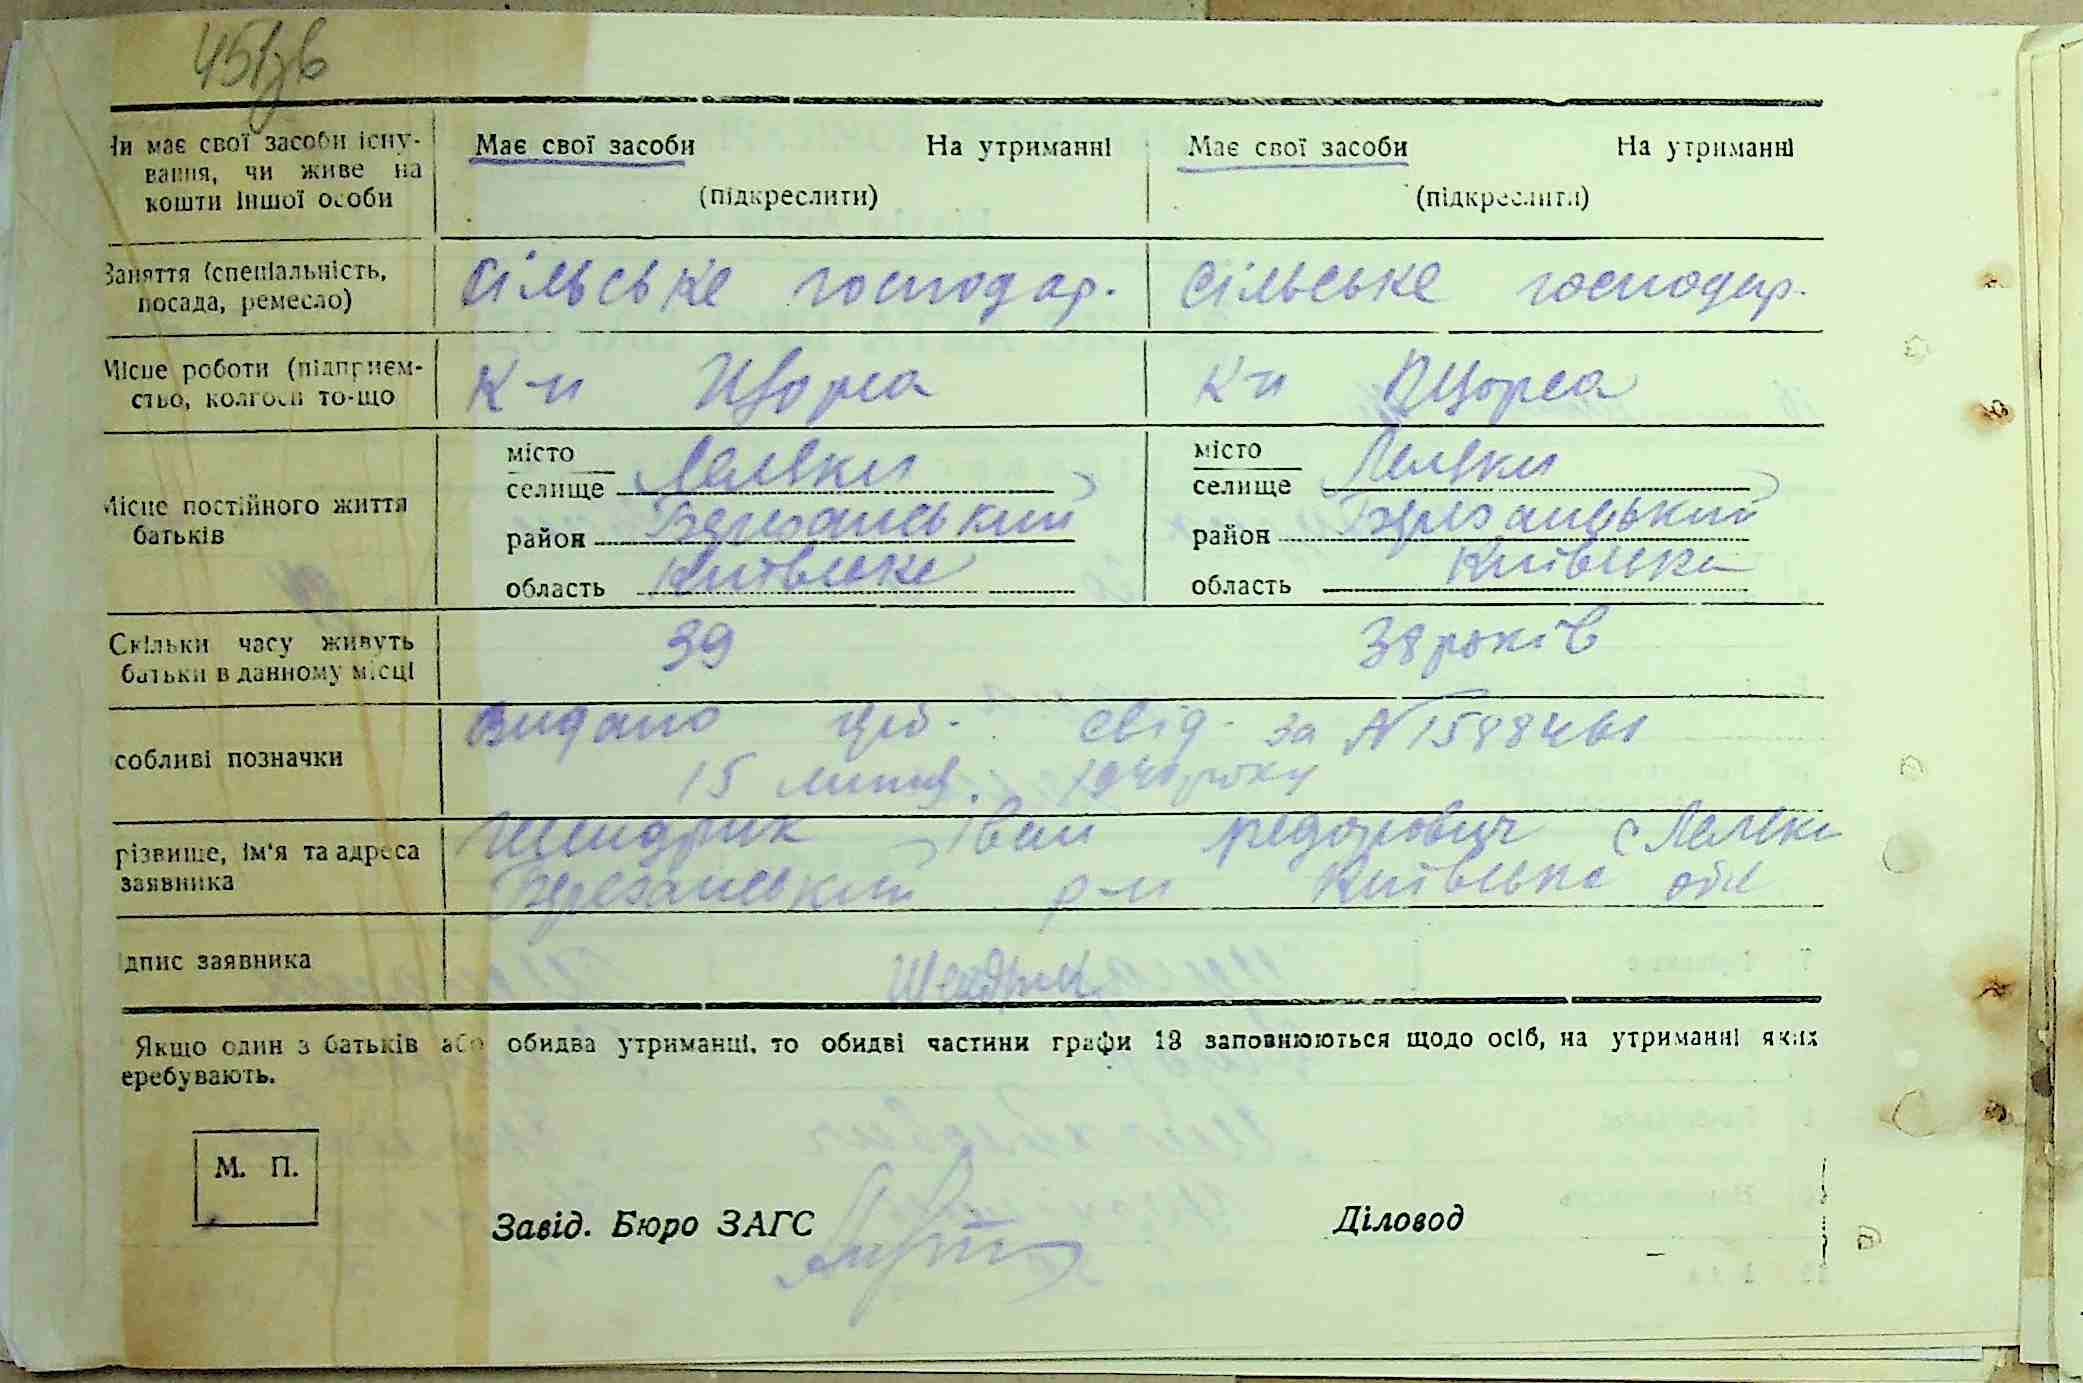 451зв
Чи має свої засоби існу-
вання, чи живе на
кошти іншої особи
Має свої засоби На утриманні
(підкреслити)
Має свої засоби На утриманні
(підкреслити)
Заняття (спеціальність,
посада, ремесло)
Сільське господар.
Сільське господар.
Місце роботи (підприєм-
ство, колгосп то-що
К-п Щорса
К-п Щорса
Місце постійного життя
батьків
місто
селище Лелеки
район Березанський
область Київська
місто
селище Лелеки
район Березанський
область Київська
Скільки часу живуть
батьки в данному місці
39
38 років
собливі позначки
Видано свід. за №
15 липня 1940 року
різвище, ім'я та адреса
заявника
Шендрик Іван Федорович с Лелеки
Березанський р-н Київська обл
ідпис заявника
Шендрик
Якщо один з батьків або обидва утриманці, то обидві частини графи 13 заповнюються щодо осіб, на утриманні яких
еребувають.
М. П.
Завід. Бюро ЗАГС
Діловод